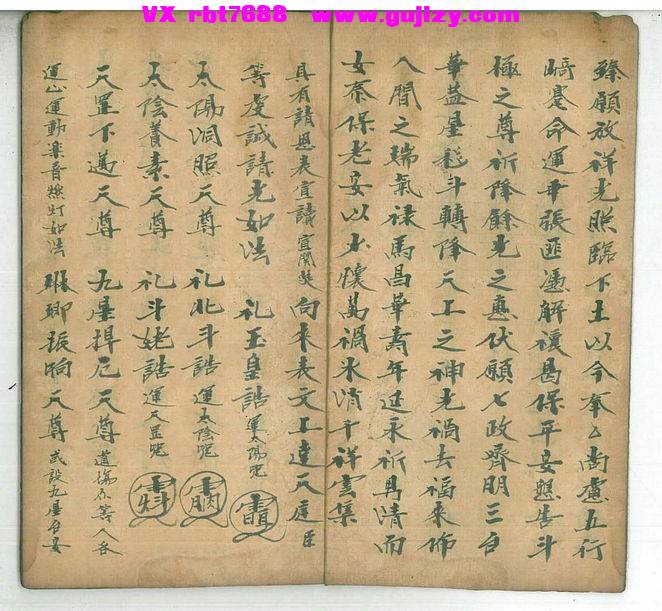 VX rbt7688 www.gujizy.com
願放祥光照臨下土以今奉 尚慮五行
崎 命運 張匪憑解禳曷保平安懇告斗
極之尊祈降餘光之惠伏願七政齊明三台
華蓋星移斗轉降天上之神光禍去福來佈
人間之瑞氣祿馬昌華壽年延永祈男清而
女泰保老安以少懷萬禍氷消千祥雲集
具有請恩表宣讀 宣聞 向來表文上達天庭臣
等虔誠請光如法 礼玉皇誥 運太陽咒
太陽洞照天尊 礼北斗誥 運太陰咒
太陰養素天尊 礼斗姥誥 運天罡咒
天罡下 天尊 九星捍厄天尊 道 等人各
運 運動樂音 灯如法 琳瑯振响天尊 或設九星台安